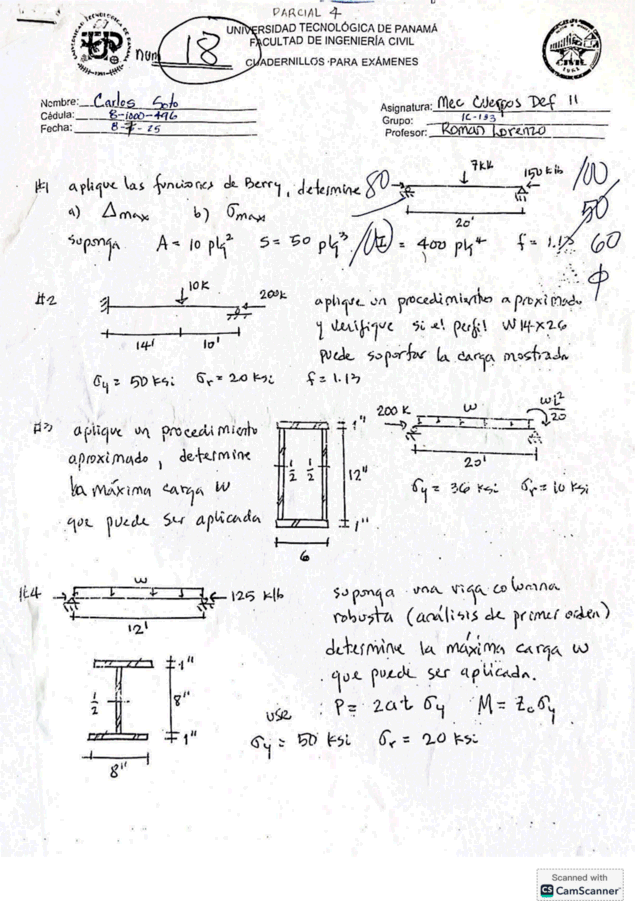 PARCIAL 4
UNIVERSIDAD TECNOLÓGICA DE PANAMÁ
FACULTAD DE INGENIERÍA CIVIL
CUADERNILLOS PARA EXÁMENES
num 18
Nombre: Carlos Soto
Cédula: 8-1000-496
Fecha: 8-7-25
Asignatura: Mec Cuerpos Def II
Grupo: IC-133
Profesor: Roman Lorenzo
#1 aplique las funciones de Berry, determine
80
7kk
150 klb
20'
100
50
60
a) Δmax b) σmax
suponga A = 10 plg² S = 50 plg³ I = 400 plg⁴ f = 1.13
#2
10K
200K
14' 10'
aplique un procedimiento aproximado
y verifique si el perfil W14x26
puede soportar la carga mostrada
σy = 50 ksi σr = 20 ksi f = 1.13
#3 aplique un procedimiento
aproximado, determine
la máxima carga w
que puede ser aplicada
1"
1/2 1/2
12"
1"
6
200 K
w
wL²/20
20'
σy = 36 ksi σr = 10 ksi
#4
w
125 klb
12'
suponga una viga columna
robusta (análisis de primer orden)
determine la máxima carga w
que puede ser aplicada.
P = 2at σy M = Zc σy
1"
1/2
8"
1"
8"
use
σy = 50 ksi σr = 20 ksi
Scanned with
CS CamScanner